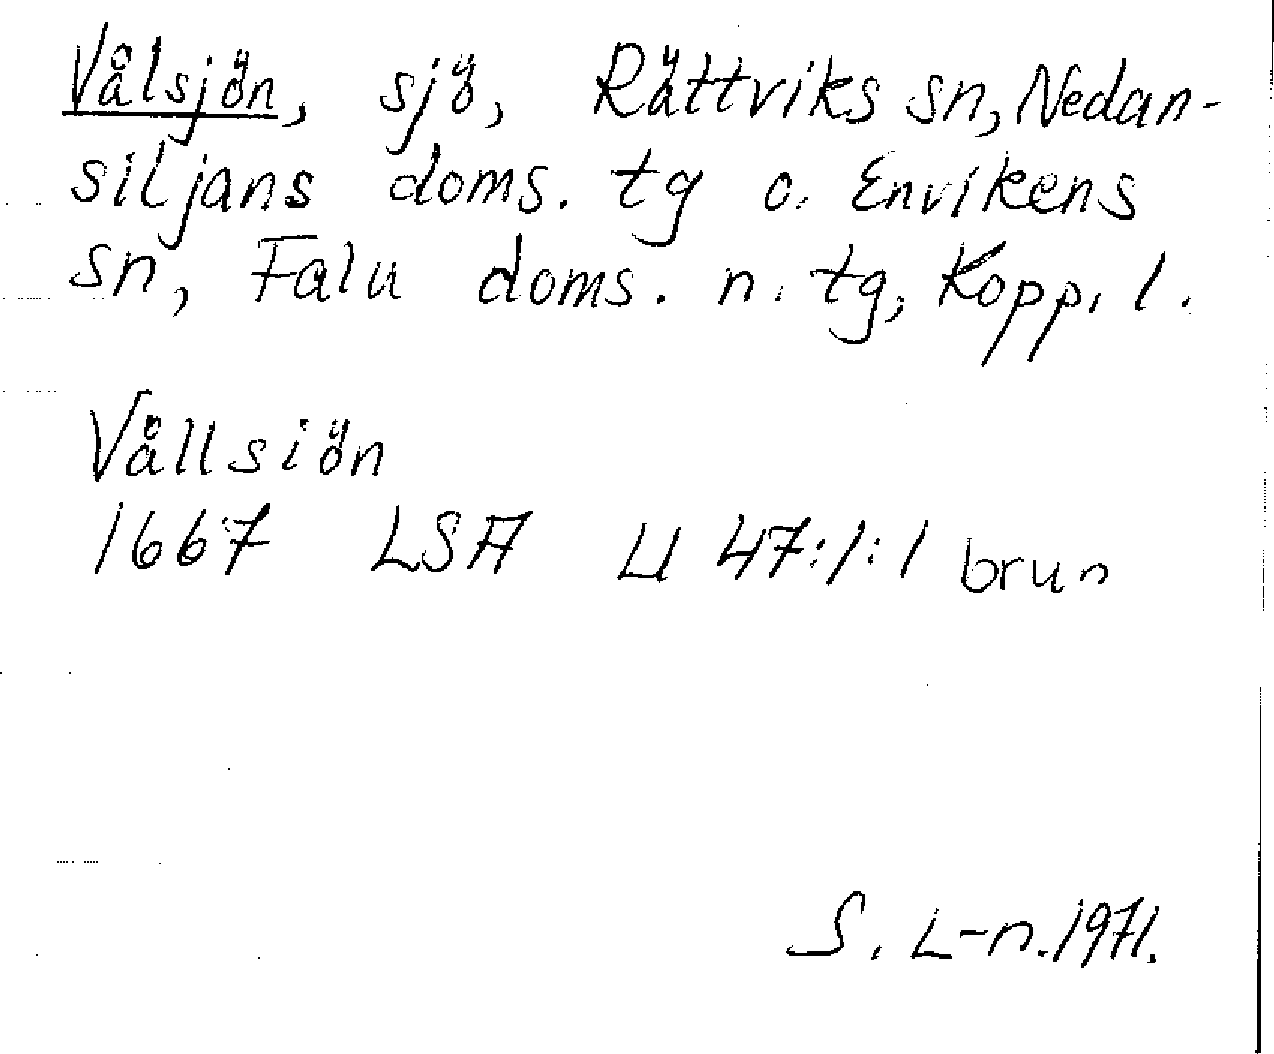 Vålsjön, sjö, Rättviks sn, Nedan-
siljans doms. tg o. Envikens
sn, Falu doms. n. tg, Kopp. l.
Vållsiön
1667 LSA U 47:1:1 brun
S. L-n. 1971.